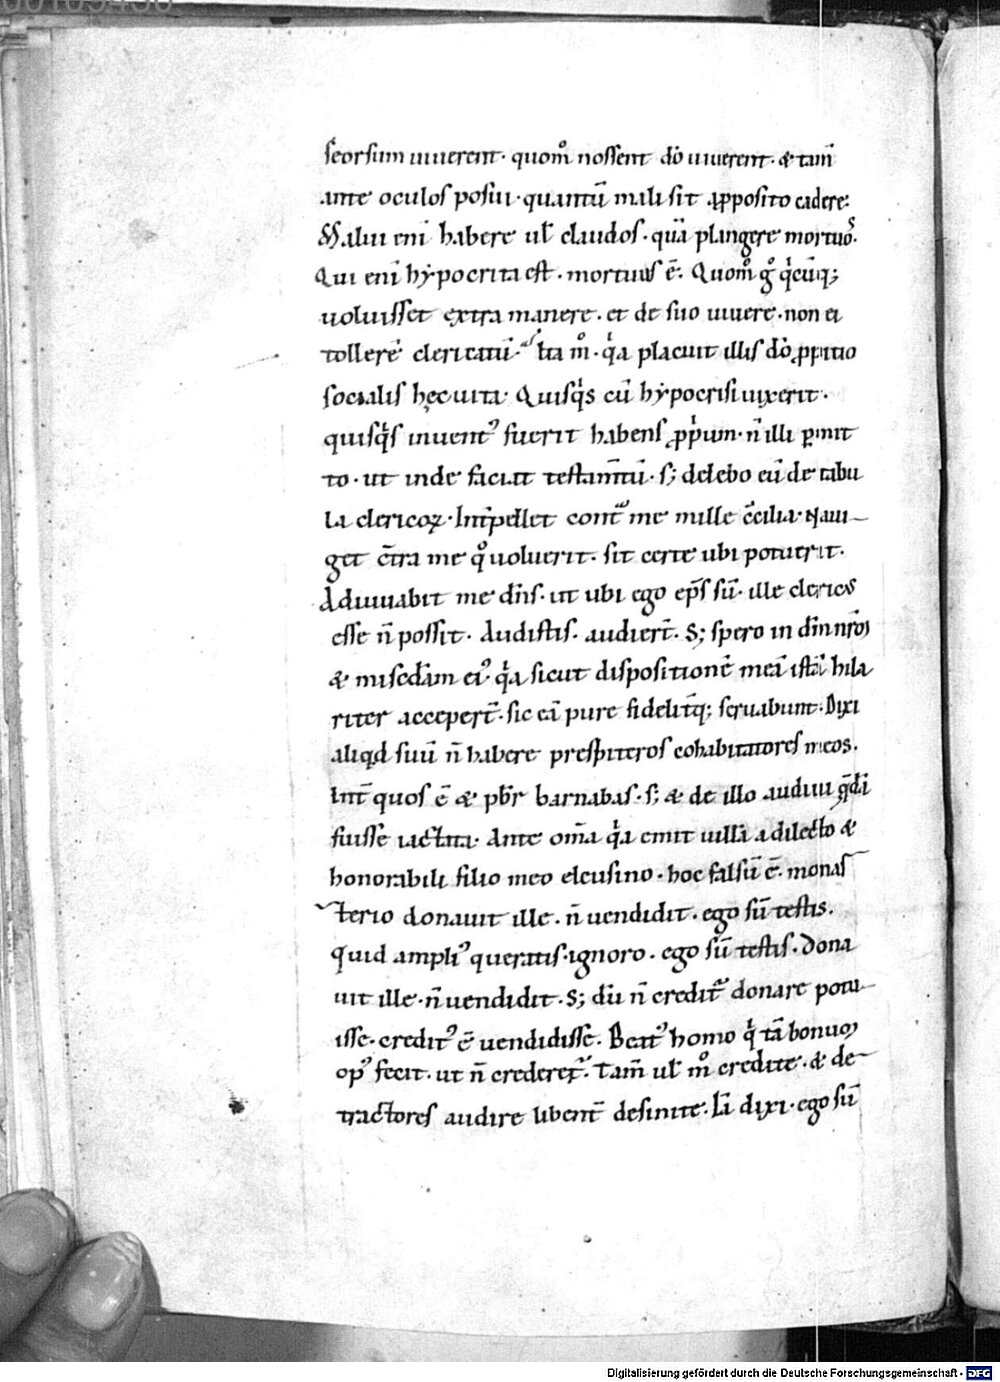 seorsum uiuerent· quom̊ nossent d̊o uiuerent· & tam̄
ante oculos posui· quantū mali sit a ꝓposito cadere:
Malui enī habere ul̄ claudos· quā plangere mortuoꝰ·
Qui enī hypocrita est· mortuus ē· Quom̊ g̊ q̇cūq;
uoluisset extra manere· et de suo uiuere· non ei
tollerē clericatū· Ita m̊· q̇a placuit illis d̊o ꝓpitio
socialis hęc uita· Quisq̇s cū hypocrisi uixerit·
quisq̇s inuentꝰ fuerit habens ꝓprium· n̄ illi ꝑmit
to· ut inde faciat testam̄tū· s; delebo eū de tabu
la clericoꝝ· Int̄pellet cont̄ me mille c̄cilia· Naui
get c̄tra me q̊ uoluerit· sit certe ubi potuerit·
Adiuuabit me dn̄s· ut ubi ego ep̄s sū· ille clericꝰ
esse n̄ possit· Audistis· audiert̄· S; spero in dm̄ nr̄m
& miscd̄am eiꝰ q̇a sicut dispositionē meā istā hila
riter accepert̄· sic eā pure fidelit̄q; seruabunt· Dixi
aliqd suū n̄ habere presbiteros cohabitatores meos·
Int̄ quos ē & pb̄r barnabas· s; & de illo audiui q̄dā
fuisse iactata· Ante om̄a q̇a emit uillā a dilecto &
honorabili filio meo eleusino· hoc falsū ē· monas
terio donauit ille· n̄ uendidit· ego sū testis·
Quid ampliꝰ queratis· ignoro· ego sū testis· Dona
uit ille· n̄ uendidit· S; dū n̄ creditꝰ donare potu
isse· creditꝰ ē uendidisse· Beatꝰ homo q̇ tā bonum
opꝰ fecit· ut n̄ crederet̄· Tam̄ ul̄ m̊ credite· & de
tractores audire libent̄ desinite· Iā dixi· ego sū
Digitalisierung gefördert durch die Deutsche Forschungsgemeinschaft · DFG